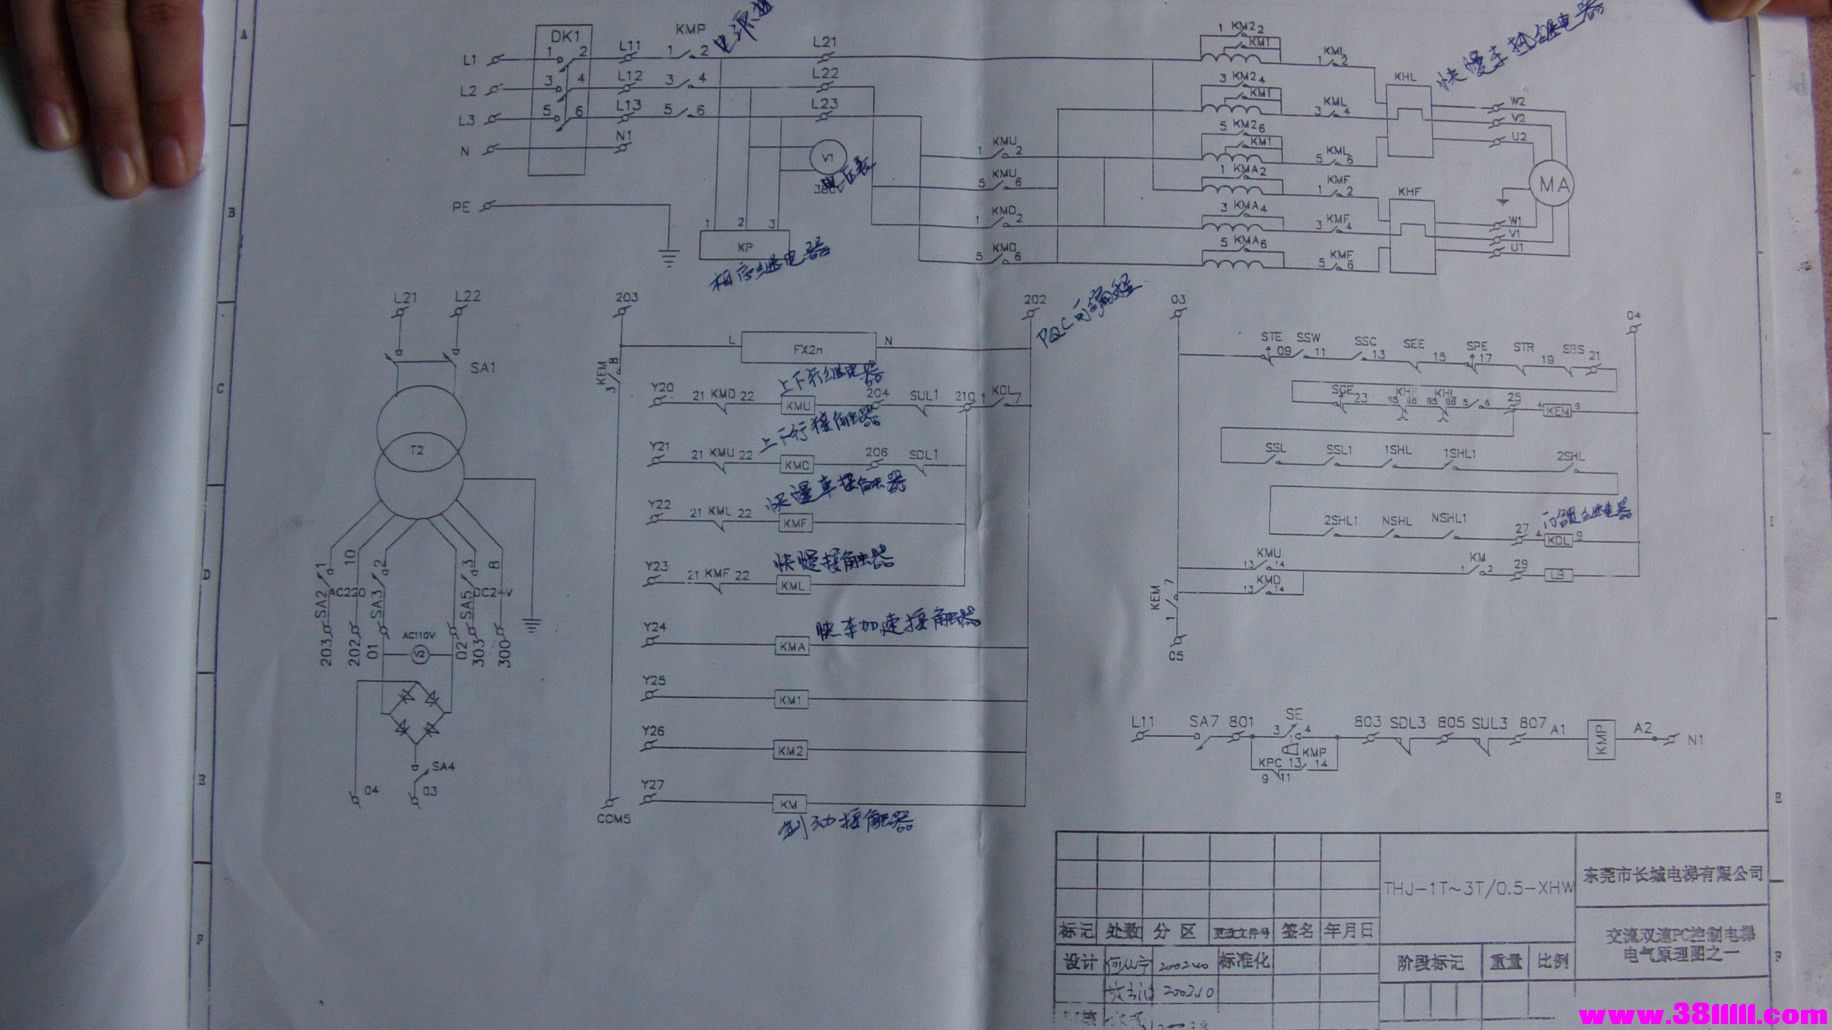 DK1
KMP
L1 1 2 L11 1 2 L21
L2 3 4 L12 3 4 L22
L3 5 6 L13 5 6 L23
N N1
PE
V1
380V
电压表
1 2 3
KP
相序继电器
1 KMU 2
5 KMU 6
1 KMD 2
5 KMD 6
1 KM2 2
KM1
KML
1 2
3 KM2 4
KM1
KML
3 4
5 KM2 6
KM1
KML
5 6
1 KMA 2
KMF
1 2
3 KMA 4
KMF
3 4
5 KMA 6
KMF
5 6
KHL
KHF
W2
V2
U2
MA
W1
V1
U1
L21 L22
SA1
T2
SA2 1 10 SA3 2 SA5 3 8
AC220 DC24V
203 202 01 02 303 300
AC110V
V2
SA4
04 03
203 202
KEM
3 8
L FX2n N
上下行继电器
Y20 21 KMD 22 KMU 204 SUL1 210 1 KDL 7
上下行接触器
Y21 21 KMU 22 KMD 206 SDL1
快慢车接触器
Y22 21 KML 22 KMF
快慢接触器
Y23 21 KMF 22 KML
快车加速接触器
Y24 KMA
Y25 KM1
Y26 KM2
Y27 KM
COM5
制动接触器
03 04
STE 09 SSW 11 SSC 13 SEE 15 SPE 17 STR 19 SBS 21
SGE 23 KHF 95 96 KHL 95 96 5 6 25 4 KEM 9
SSL SSL1 1SHL 1SHL1 2SHL
门锁继电器
2SHL1 NSHL NSHL1 27 4 KDL 9
KMU
13 14
KMD
13 14
KM
1 2
29 LB
KEM
1 7
05
L11 SA7 801 SE 3 4 803 SDL3 805 SUL3 807 A1 KMP A2 N1
KMP
KPC 13 14
9 11
THJ-1T~3T/0.5-XHW
东莞市长城电梯有限公司
标记 处数 分 区 更改文件号 签名 年月日
交流双速PC控制电梯
电气原理图之一
设计 标准化
阶段标记 重量 比例
2002.10
A
B
C
D
E
F
E
F
www.38lllll.com